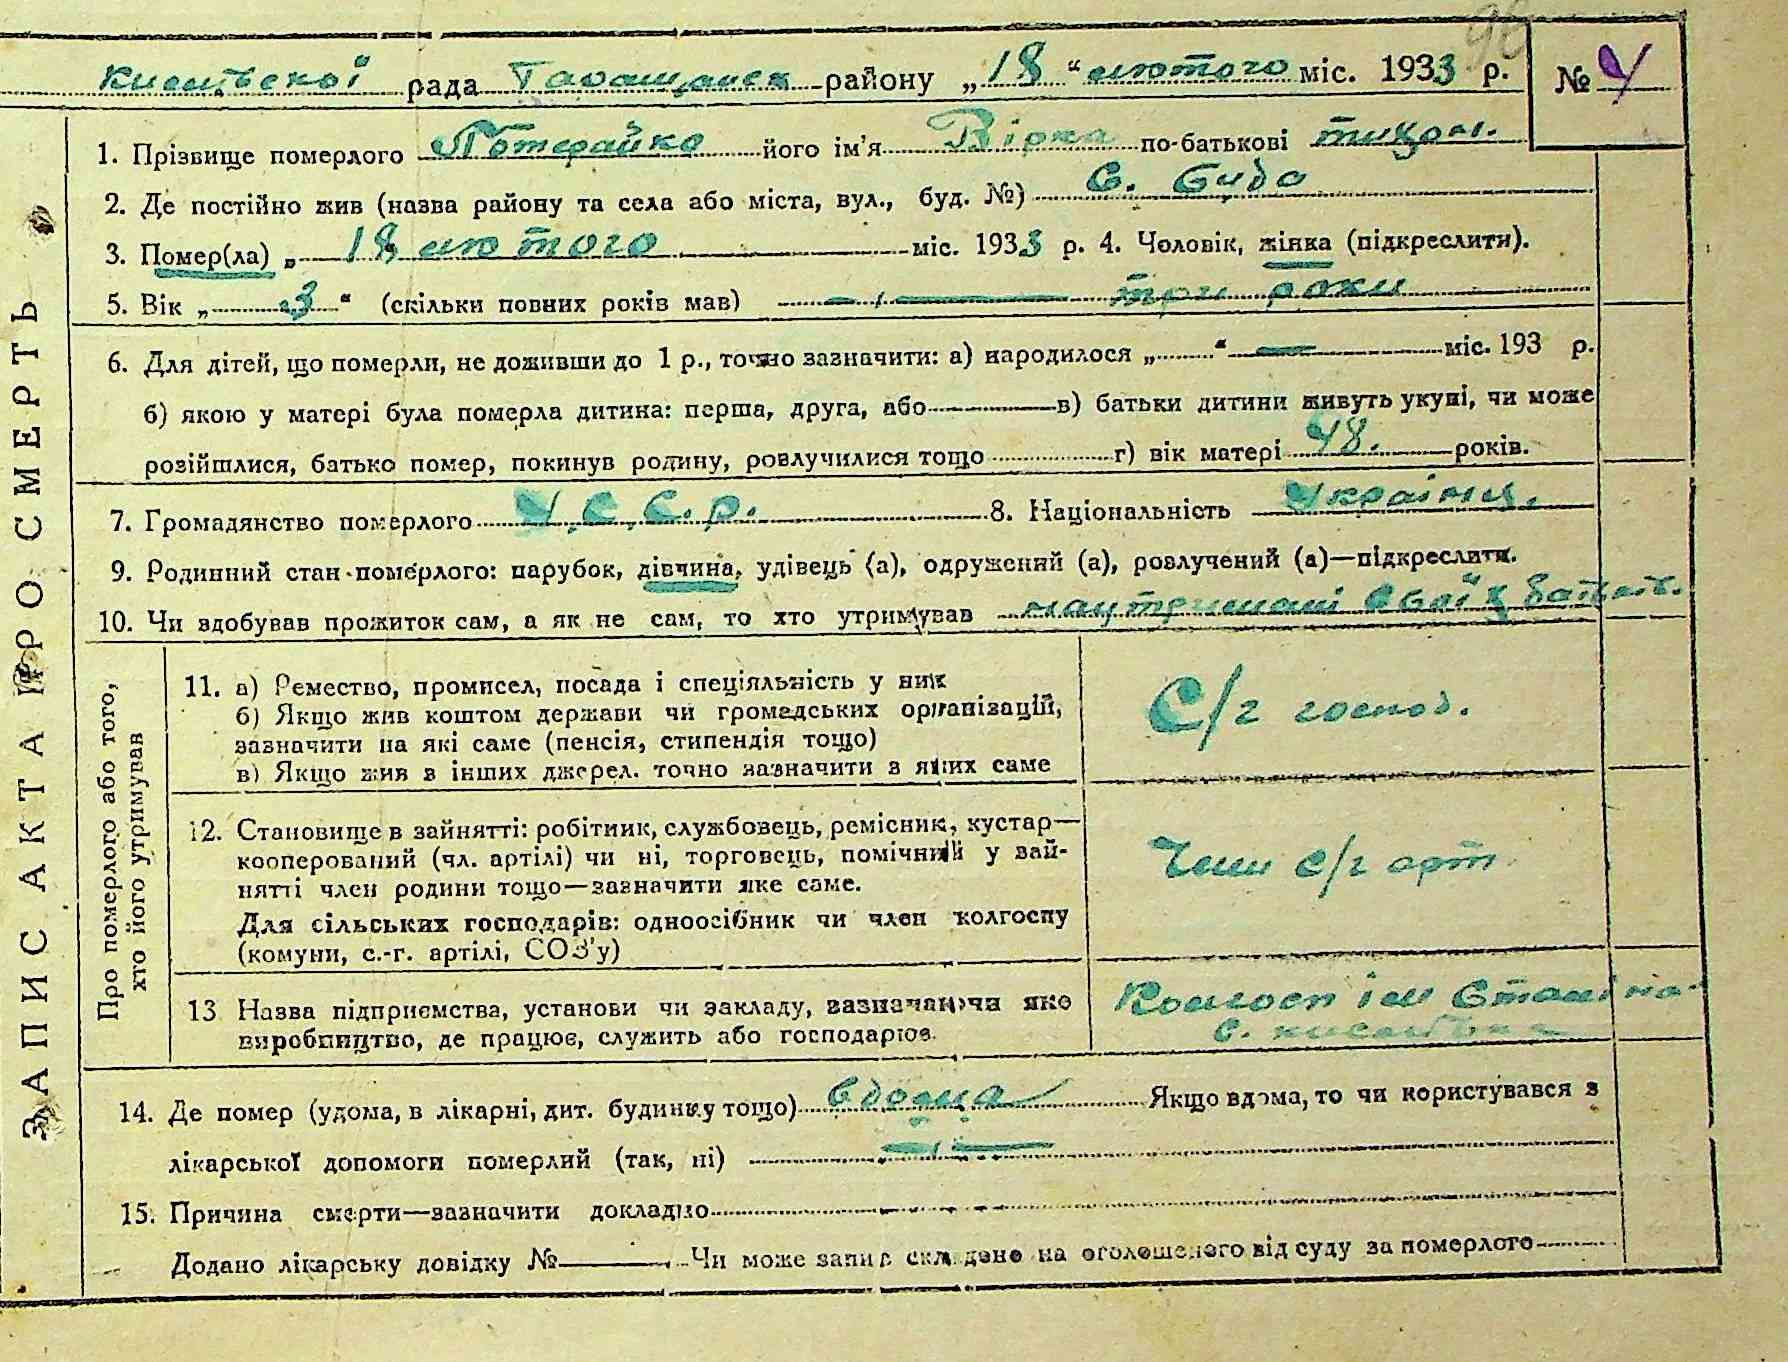 96
кисилівської рада Таращанск району „18“ лютого міс. 1933 р. № 4
ЗАПИС АКТА ПРО СМЕРТЬ
1. Прізвище померлого Потерайко його ім'я Вірка по-батькові тихон.
2. Де постійно жив (назва району та села або міста, вул., буд. №)
3. Помер(ла) „ 18 лютого міс. 1933 р. 4. Чоловік, жінка (підкреслити).
5. Вік „ 3 “ (скільки повних років мав) три роки
6. Для дітей, що померли, не доживши до 1 р., точно зазначити: а) народилося „ “ — міс. 193 р.
б) якою у матері була померла дитина: перша, друга, або в) батьки дитини живуть укупі, чи може
розійшлися, батько помер, покинув родину, розлучилися тощо г) вік матері 48. років.
7. Громадянство померлого У.С.С.р. 8. Національність Україн.
9. Родинний стан померлого: парубок, дівчина, удівець (а), одружений (а), розлучений (а)—підкреслити.
10. Чи здобував прожиток сам, а як не сам, то хто утримував на утриманні своїх батьків.
Про померлого або того,
хто його утримував
11. а) Ремество, промисел, посада і спеціяльність у них
б) Якщо жив коштом держави чи громадських організацій,
зазначити на які саме (пенсія, стипендія тощо)
в) Якщо жив з інших джерел. точно зазначити з яких саме
С/г господ.
12. Становище в зайнятті: робітник, службовець, ремісник, кустар—
кооперований (чл. артілі) чи ні, торговець, помічний у зай-
нятті член родини тощо—зазначити яке саме.
Для сільських господарів: одноосібник чи член колгоспу
(комуни, с.-г. артілі, СОЗ'у)
Член с/г арт.
13 Назва підприємства, установи чи закладу, зазначаючи яке
виробництво, де працює, служить або господарює.
Колгосп ім Сталіна
с.
14. Де помер (удома, в лікарні, дит. будинку тощо) вдома Якщо вдома, то чи користувався з
лікарської допомоги померлий (так, ні) —
15. Причина смерти—зазначити докладно
Додано лікарську довідку № Чи може запис складено на оголошеного від суду за померлого